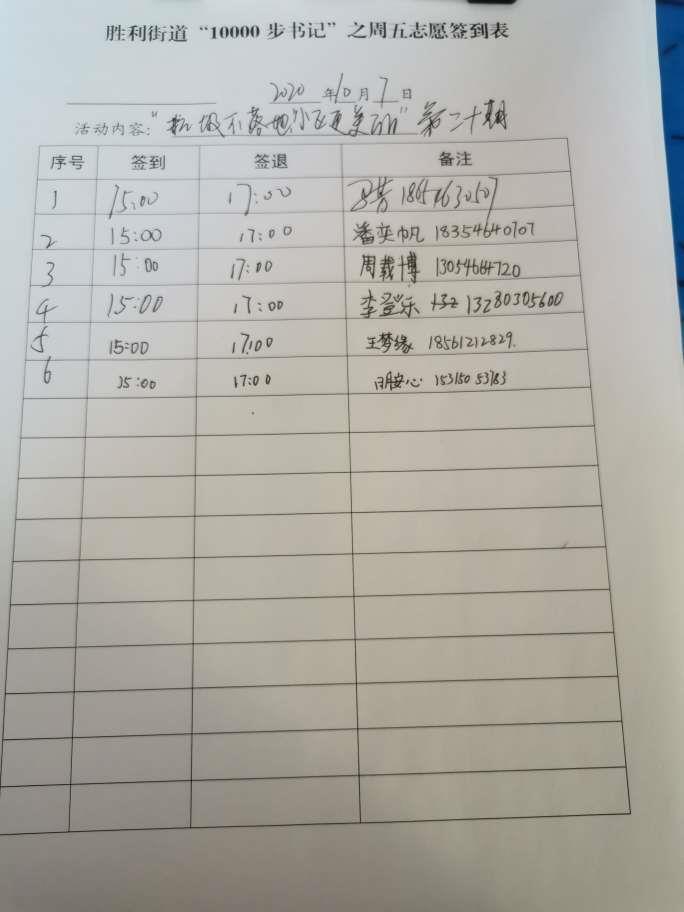 胜利街道“10000步书记”之周五志愿签到表
2020年10月7日
活动内容:“垃圾不落地,小区更美丽”第二十期
序号 签到 签退 备注
1 15:00 17:00
2 15:00 17:00 潘奕帆 18354640707
3 15:00 17:00 周载博 13054664720
4 15:00 17:00 李登乐 13280305600
5 15:00 17:00 王梦缘 18561212829.
6 15:00 17:00 明安心 15315053783